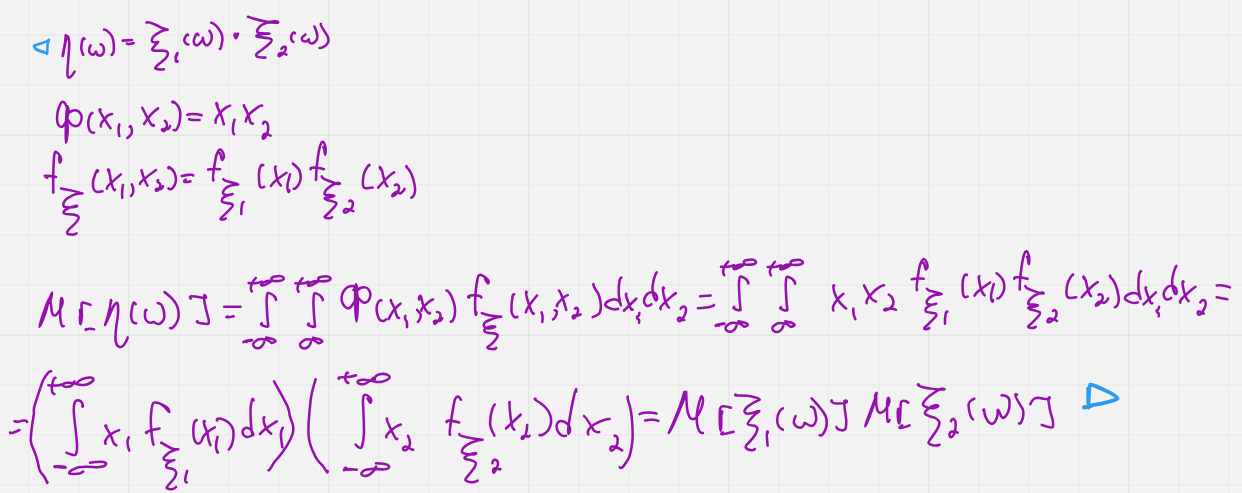 ◁ η(ω) = ξ₁(ω) · ξ₂(ω)
φ(x₁, x₂) = x₁x₂
f_ξ(x₁, x₂) = f_ξ₁(x₁) f_ξ₂(x₂)
M[η(ω)] = ∫_{-∞}^{+∞} ∫_{∞}^{+∞} φ(x₁, x₂) f_ξ(x₁, x₂) dx₁dx₂ = ∫_{-∞}^{+∞} ∫_{∞}^{+∞} x₁x₂ f_ξ₁(x₁) f_ξ₂(x₂) dx₁dx₂ =
= (∫_{-∞}^{+∞} x₁ f_ξ₁(x₁) dx₁) (∫_{-∞}^{+∞} x₂ f_ξ₂(x₂) dx₂) = M[ξ₁(ω)] M[ξ₂(ω)] ▷